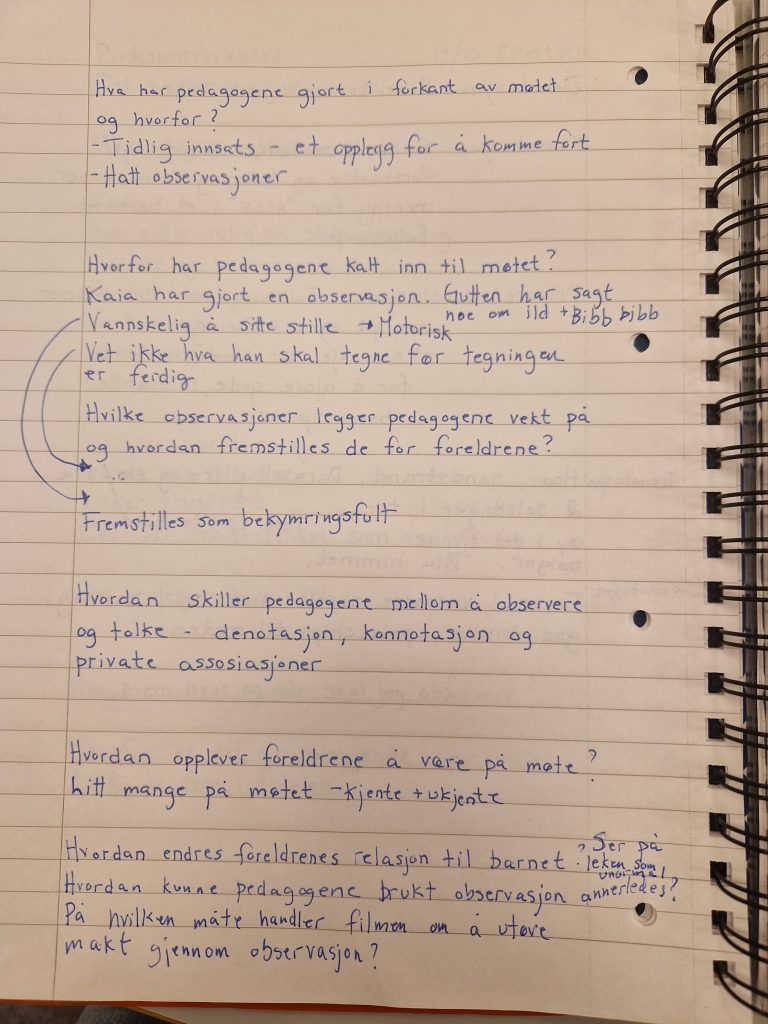 Hva har pedagogene gjort i forkant av møtet
og hvorfor?
- Tidlig innsats - et opplegg for å komme fort
- Hatt observasjoner
Hvorfor har pedagogene kalt inn til møtet?
Kaia har gjort en observasjon. Gutten har sagt
noe om ild + Bibb bibb
Vannskelig å sitte stille → Motorisk
Vet ikke hva han skal tegne før tegningen
er ferdig
Hvilke observasjoner legger pedagogene vekt på
og hvordan fremstilles de for foreldrene?
Fremstilles som bekymringsfult
Hvordan skiller pedagogene mellom å observere
og tolke - denotasjon, konnotasjon og
private assosiasjoner
Hvordan opplever foreldrene å være på møte?
Litt mange på møtet - kjente + ukjente
Hvordan endres foreldrenes relasjon til barnet? Ser på
leken som
unormal
Hvordan kunne pedagogene brukt observasjon annerledes?
På hvilken måte handler filmen om å utøve
makt gjennom observasjon?